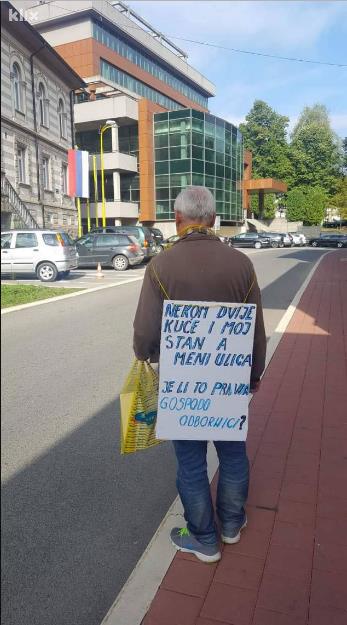 klix
NEKOM DVIJE
KUĆE I MOJ
STAN A
MENI ULICA
JE LI TO PRAVDA
GOSPODO
ODBORNICI?